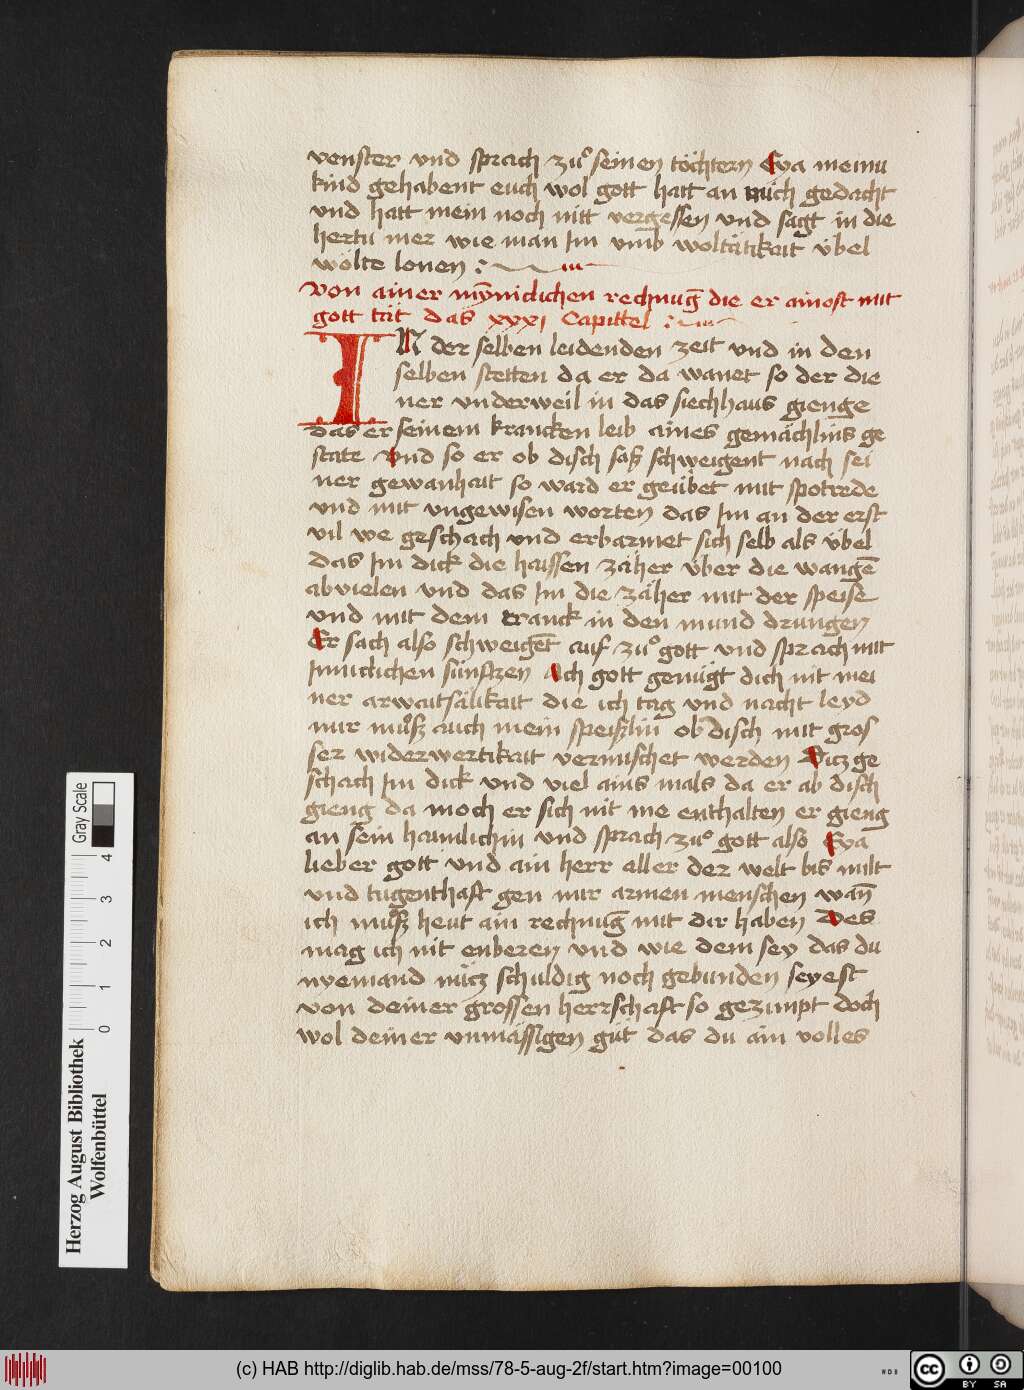 venster vnd sprach zuͦ seinen töchtern Eya meinu
kind gehabent euch wol gott hatt an mich gedacht
vnd hatt mein noch nitt vergessen vnd sagt in die
hertu mer wie man Im vmb woltätikait übel
wölte lonen :~
Von ainer mÿniclichen rechnūg die er ainost mit
gott tät das xxxi Capittel :~
IN der selben leidenden zeit vnd in den
selben stetten da er da wanet so der die
ner vnderweil in das siechhaus gienge
das er seinem krancken leib aines gemächlins ge
state Vnd so er ob disch saß schweigent nach sei
ner gewanhait so ward er geübet mit spotrede
vnd mit vngewisen worten das Im an der erst
vil we geschach vnd erbarmet sich selb als übel
das Im dick die haissen zäher über die wangē
abvielen vnd das Im die zäher mit der speise
vnd mit dem tranck in den mund drungen
Er sach also schweigēt auf zuͦ gott vnd sprach mit
Inniclichen sünftzen Ach gott genügt dich nit mei
ner arwaitsälikait die ich tag vnd nacht leyd
mir muͦß auch mein speißlin ob disch mit gros
ser widerwertikait vermischet werden Ditz ge
schach Im dick vnd viel ains mals da er ab disch
gieng da moch er sich nit me enthalten er gieng
an sein haimlichin vnd sprach zuͦ gott also Eya
lieber gott vnd ain herr aller der welt bis milt
vnd tugenthaft gen mir armen menschen wañ
ich muͦß heut ain rechnūg mit dir haben Des
mag ich nit enberen vnd wie dem sey das du
nyemand nütz schuldig noch gebunden seyest
von deiner grossen herrschaft so gezimpt doch
wol deiner vnmässigen güt das du ain volles
Gray Scale
4
3
2
1
0
Herzog August Bibliothek
Wolfenbüttel
(c) HAB http://diglib.hab.de/mss/78-5-aug-2f/start.htm?image=00100
cc BY SA